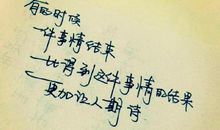 有的时候
一件事情结束
比得到这件事情的结果
更加让人期待